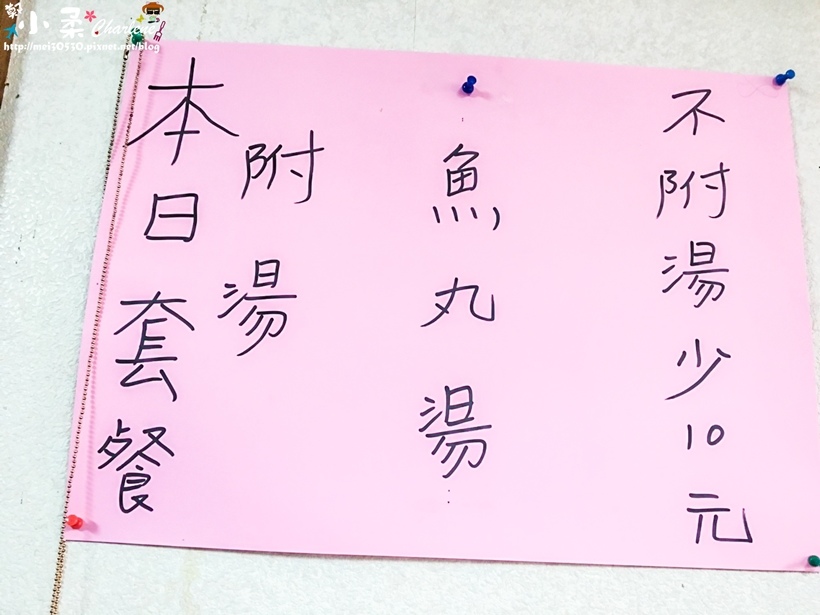 小柔 Charlene
http://mei30530.pixnet.net/blog
本日套餐
附湯
魚丸湯
不附湯少10元